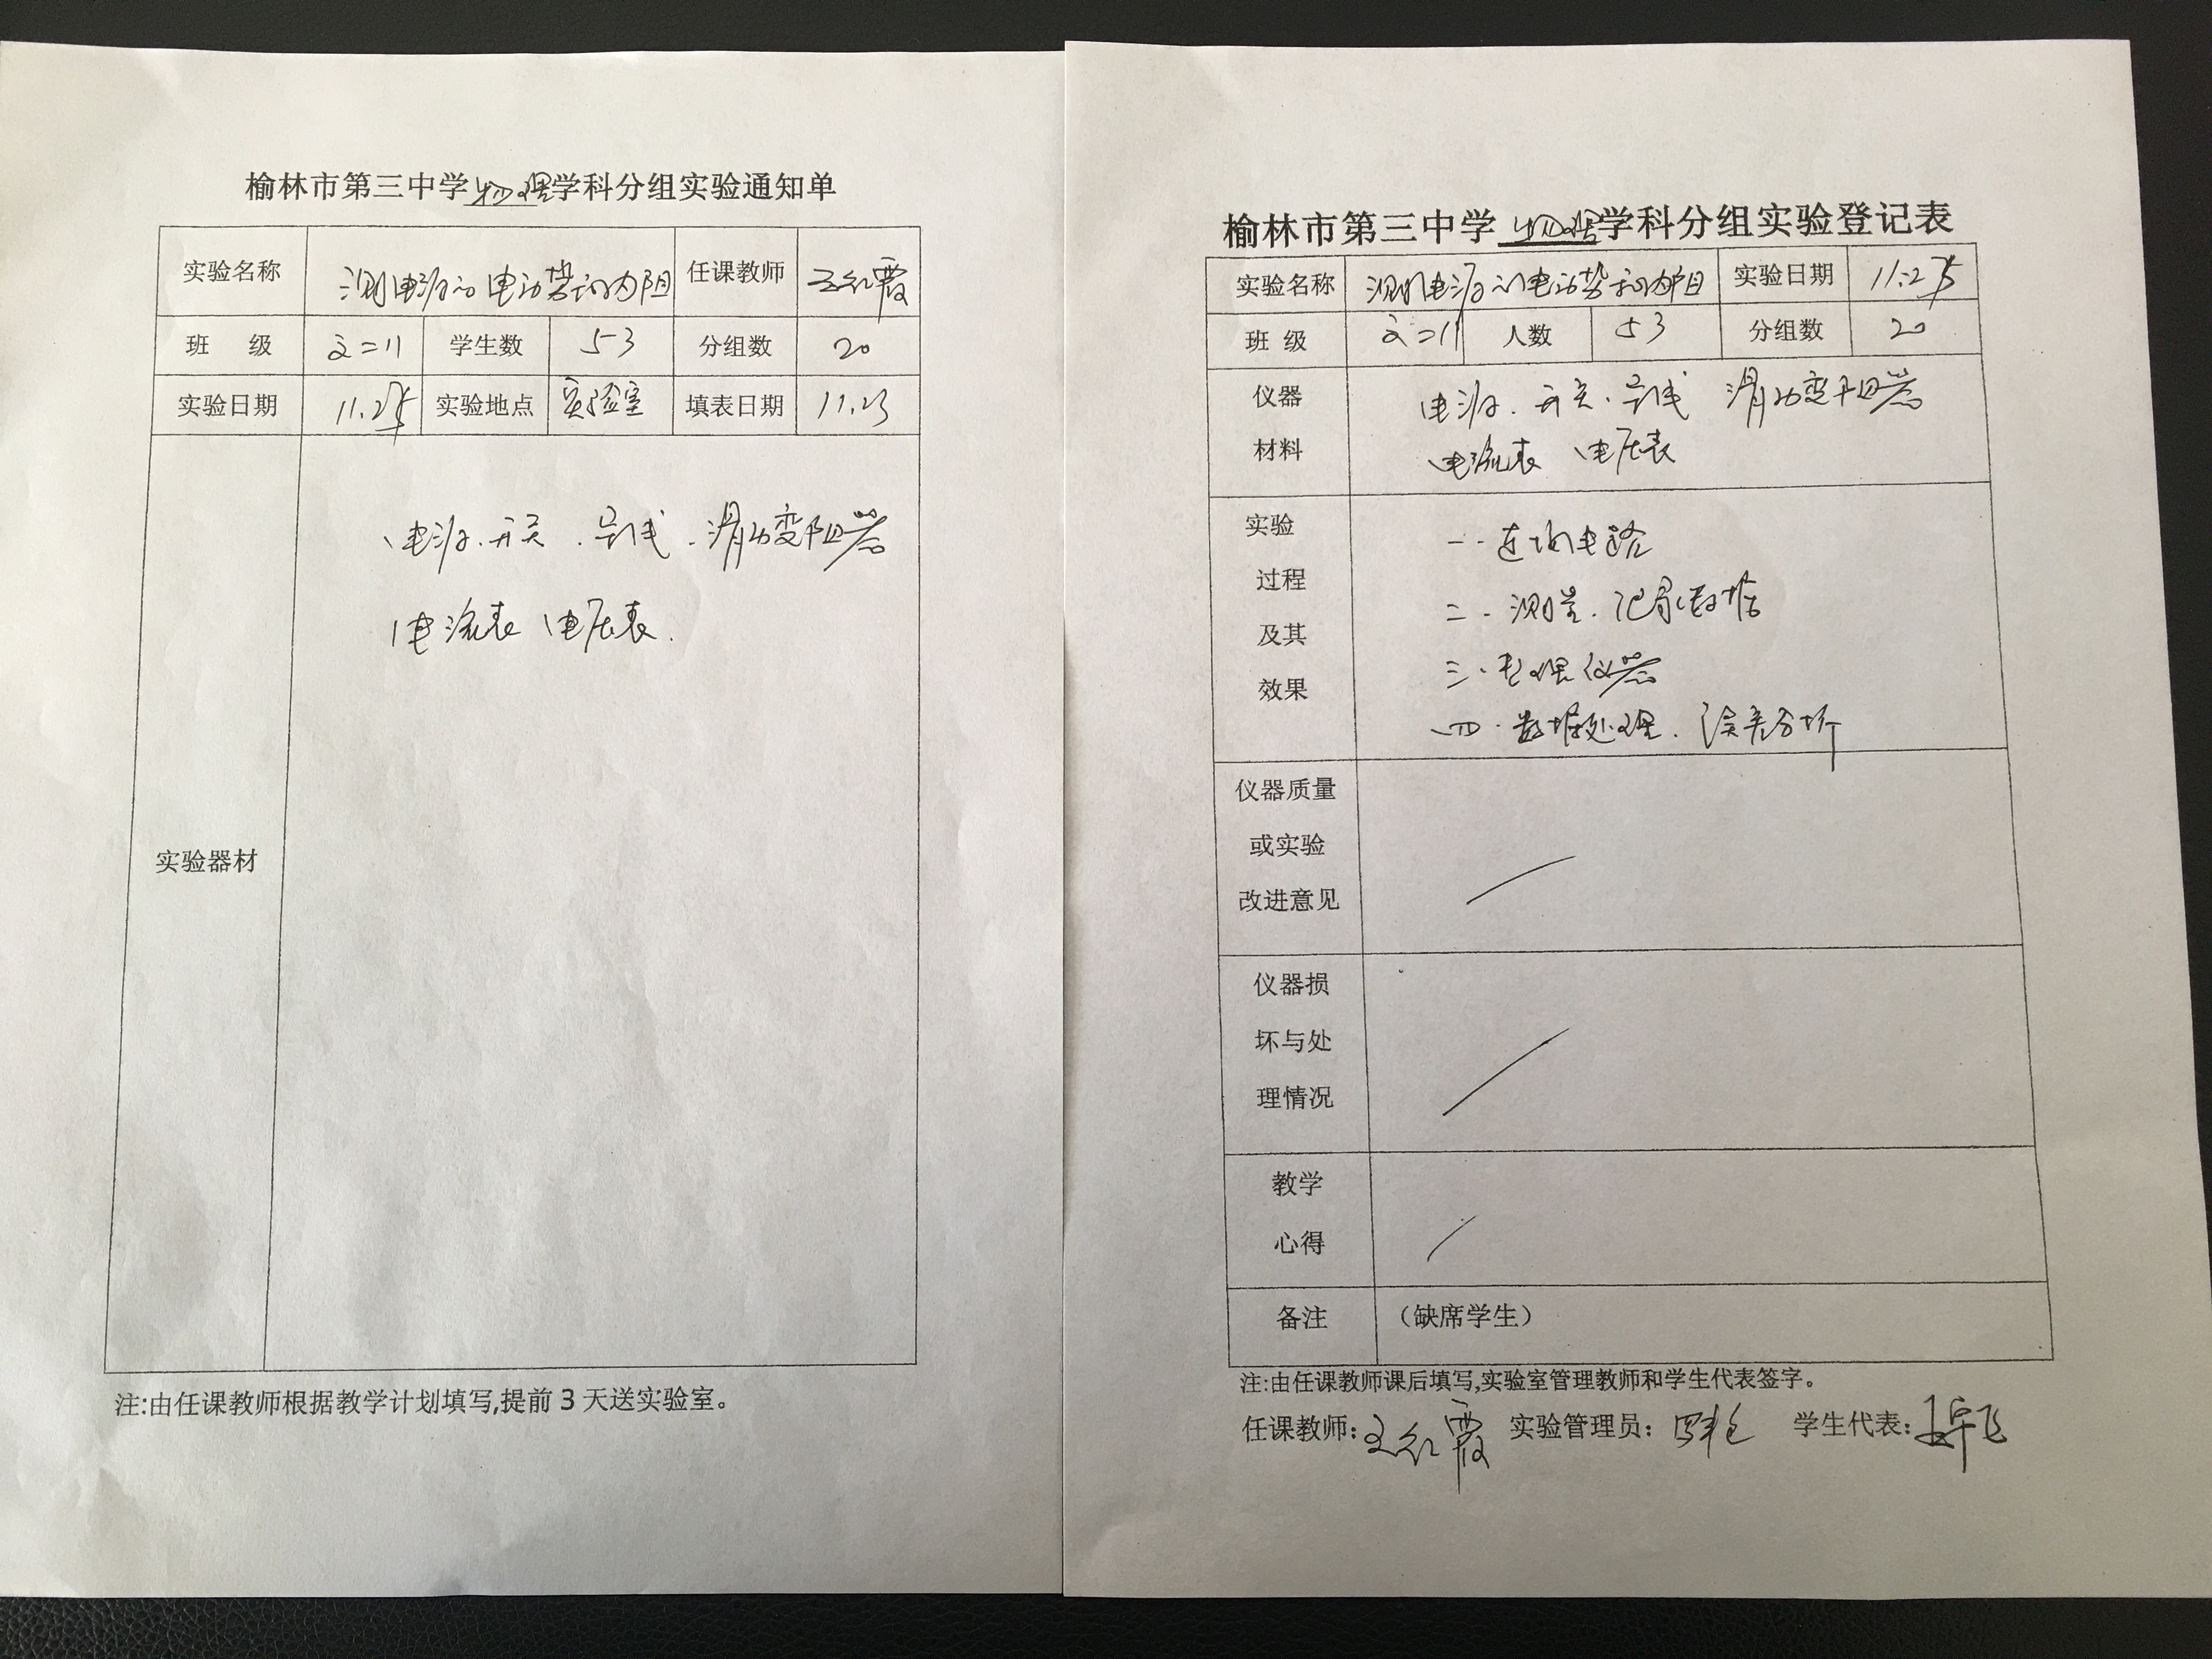 榆林市第三中学物理学科分组实验通知单
实验名称 测电源的电动势和内阻 任课教师 王红霞
班 级 文二11 学生数 53 分组数 20
实验日期 11.25 实验地点 实验室 填表日期 11.23
实验器材
电源、开关、导线、滑动变阻器
电流表 电压表.
注:由任课教师根据教学计划填写,提前3天送实验室。
榆林市第三中学物理学科分组实验登记表
实验名称 测电源的电动势和内阻 实验日期 11.25
班 级 文二11 人数 53 分组数 20
仪器
材料
电源、开关、导线 滑动变阻器
电流表 电压表
实验
过程
及其
效果
一、连接电路
二、测量、记录数据
三、整理仪器
四、数据处理、误差分析
仪器质量
或实验
改进意见
仪器损
坏与处
理情况
教学
心得
备注 （缺席学生）
注:由任课教师课后填写,实验室管理教师和学生代表签字。
任课教师: 王红霞 实验管理员: 学生代表: